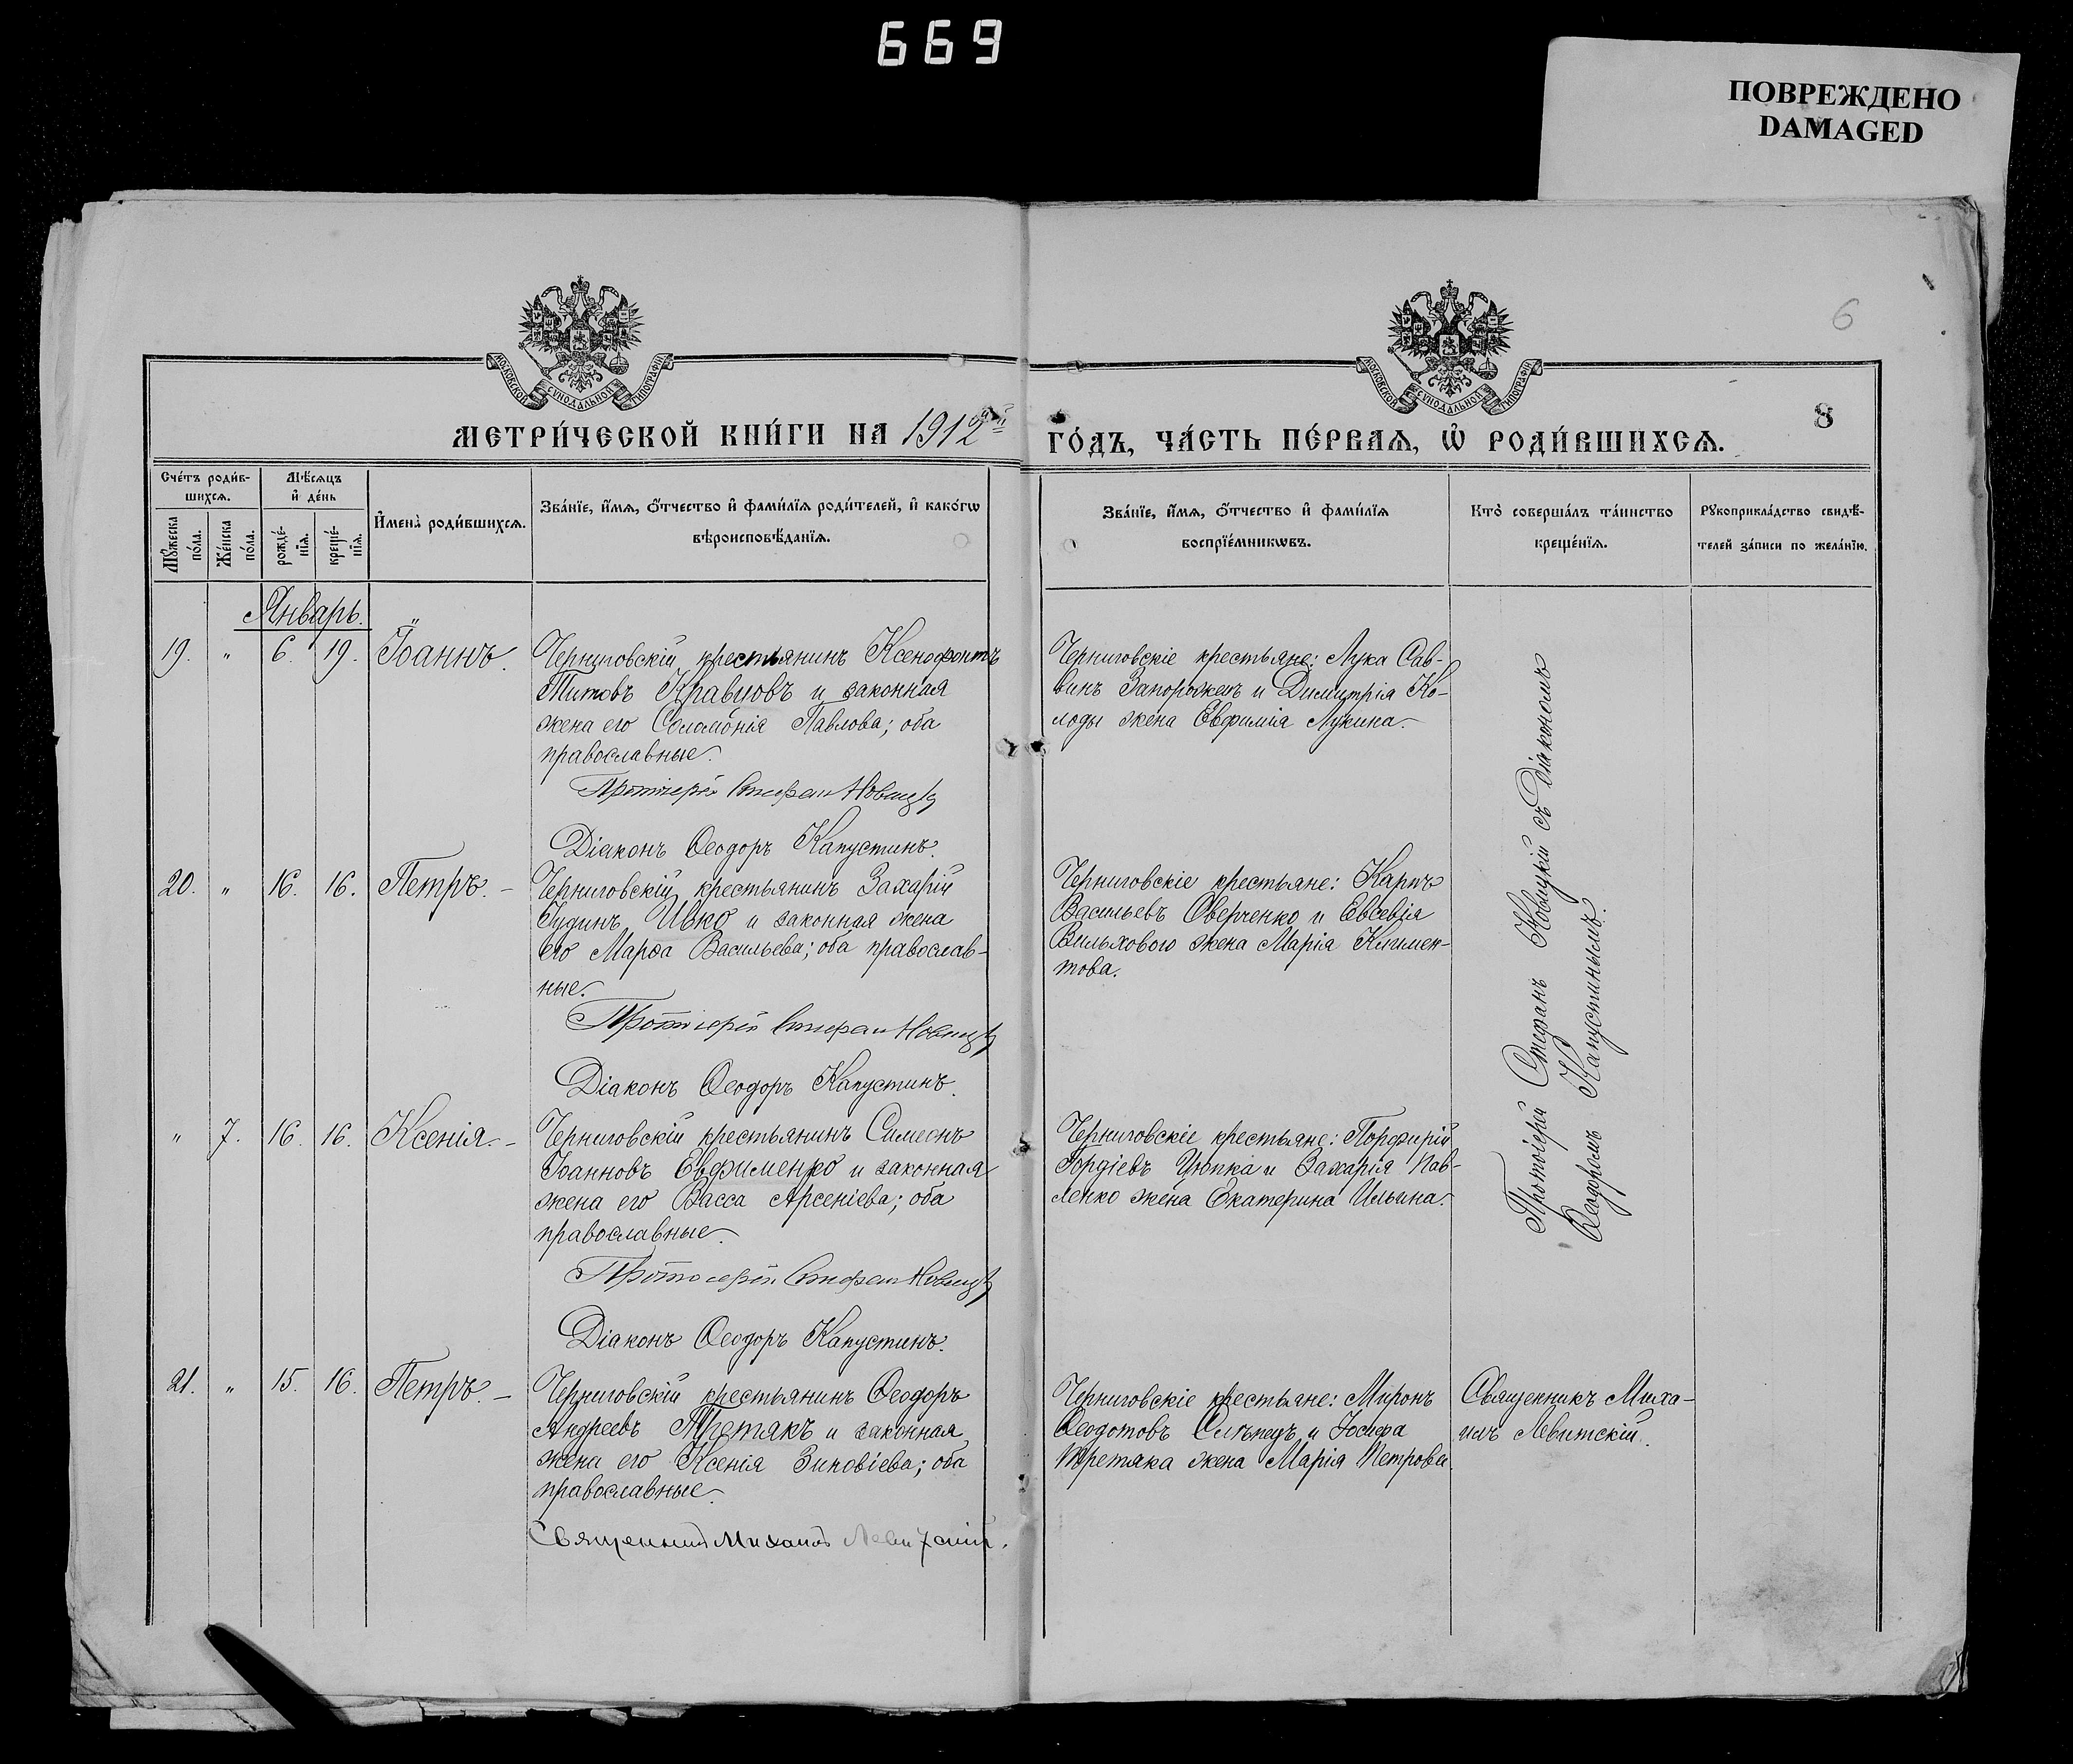 669
ПОВРЕЖДЕНО
DAMAGED
6
8
МОСКОВСКОЙ СѴНОДАЛЬНОЙ ТИПОГРАФІИ
МОСКОВСКОЙ СѴНОДАЛЬНОЙ ТИПОГРАФІИ
МЕТРИ́ЧЕСКОЙ КНИ́ГИ НА 1912 ГО́ДЪ, ЧА́СТЬ ПЕ́РВАѦ, Ѡ҆ РОДИ́ВШИХСѦ.
Сче́тъ роди́в-
шихсѧ.
Мѣ́сѧцъ
и҆ де́нь
Мꙋ́жеска
по́ла.
Же́нска
по́ла.
рожде́-
нїѧ.
креще́-
нїѧ.
И҆мена̀ роди́вшихсѧ.
Зва́нїе, и҆́мѧ, ѻ҆́тчество и҆ фами́лїѧ роди́телей, и҆ како́гѡ
вѣроисповѣ́данїѧ.
Зва́нїе, и҆́мѧ, ѻ҆́тчество и҆ фами́лїѧ
воспрїе́мникѡвъ.
Кто̀ соверша́лъ та́инство
креще́нїѧ.
Рꙋкоприкла́дство свидѣ́-
телей за́писи по жела́нїю.
Январь.
19. " 6. 19. Іоаннъ.
Черниговскій крестьянинъ Ксенофонтъ
Титовъ Кравцовъ и законная
жена его Соломонія Павлова; оба
православные.
Протоіерей Стефан Новицкій
Діаконъ Ѳеодоръ Капустинъ.
Черниговскіе крестьяне: Лука Сав-
винъ Запорожецъ и Димитрія Ко-
лоды жена Евфимія Лукина.
20. " 16. 16. Петръ.
Черниговскій крестьянинъ Захарій
Іудинъ Ивко и законная жена
его Марѳа Васильева; оба православ-
ные.
Протоіерей Стефан Новицкій
Діаконъ Ѳеодоръ Капустинъ.
Черниговскіе крестьяне: Карпъ
Васильевъ Оверченко и Евсевія
Вильхового жена Марія Климен-
това.
" 7. 16. 16. Ксенія.
Черниговскій крестьянинъ Симеонъ
Іоанновъ Евфименко и законная
жена его Васса Арсеніева; оба
православные.
Протоіерей Стефан Новицкій
Діаконъ Ѳеодоръ Капустинъ.
Черниговскіе крестьяне: Порфирій
Гордіевъ Цюпка и Захарія Пав-
ленко жена Екатерина Ильина.
Протоіерей Стефанъ Новицкій съ Діакономъ
Ѳеодоромъ Капустинымъ.
21. " 15. 16. Петръ.
Черниговскій крестьянинъ Ѳеодоръ
Андреевъ Третякъ и законная
жена его Ксенія Зиновіева; оба
православные.
Священникъ Михаилъ Левитскій.
Черниговскіе крестьяне: Миронъ
Ѳеодотовъ Слѣпецъ и Іосифа
Третяка жена Марія Петрова.
Священникъ Миха-
илъ Левитскій.